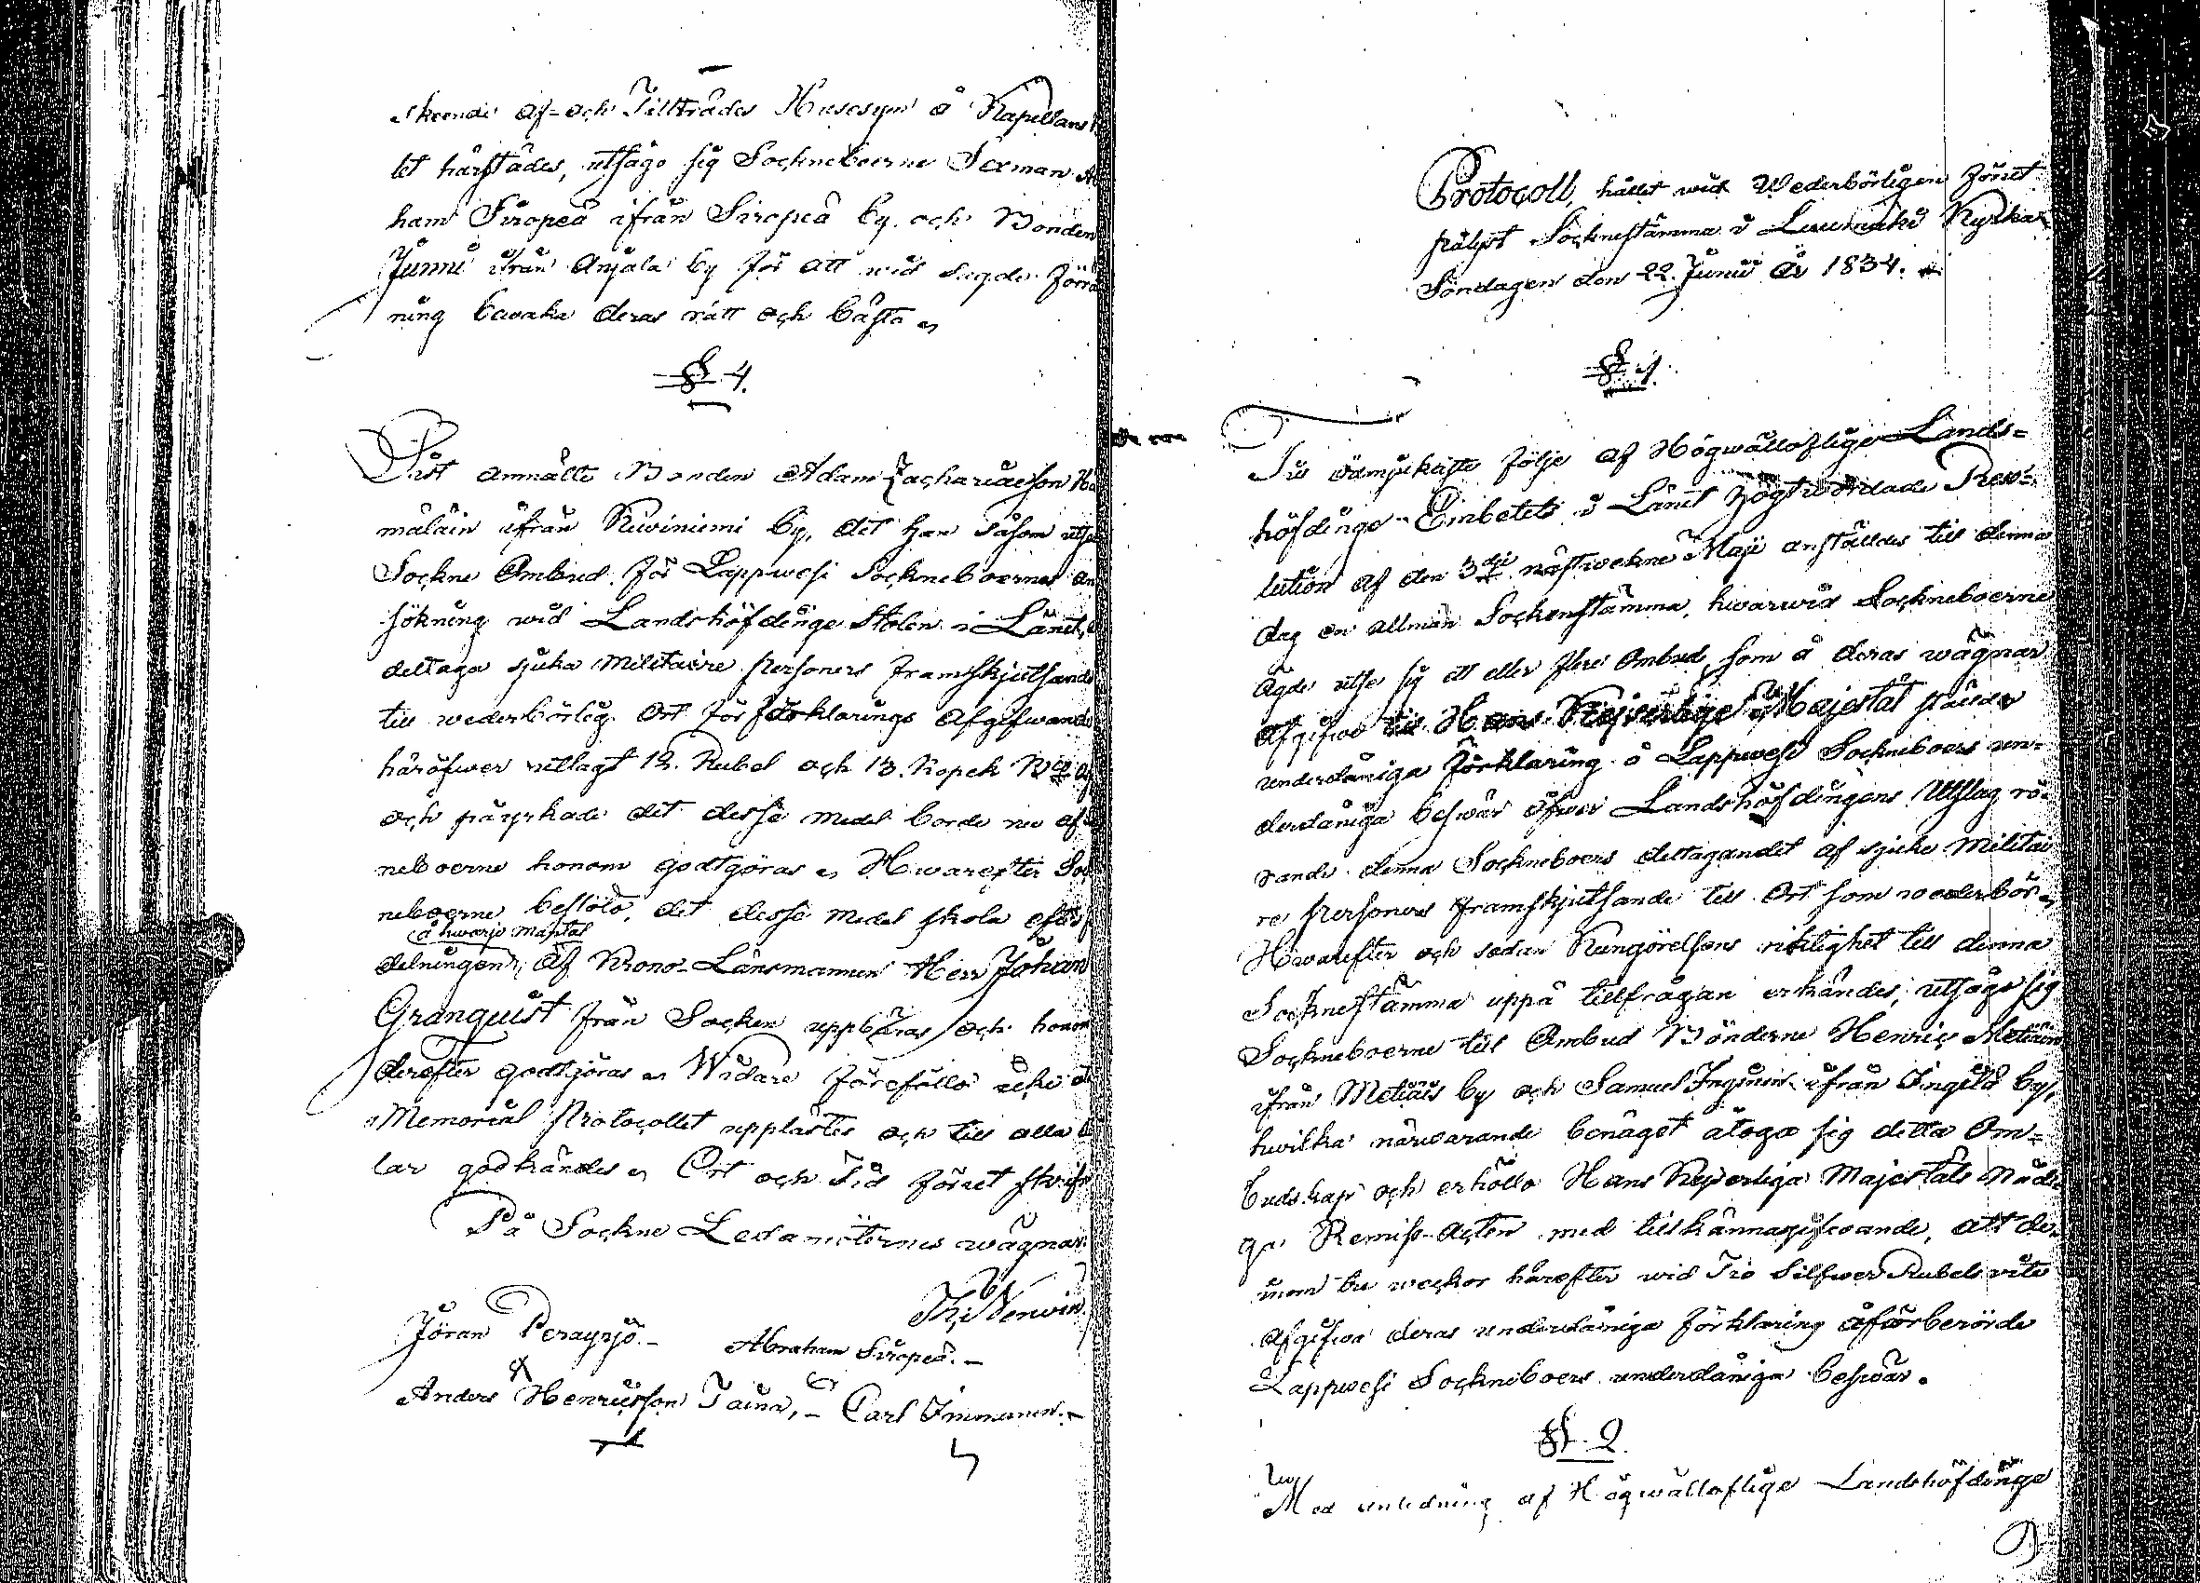 skeende af- och Tillträdes Husesyn å Kapellans
let härstädes, utsågo sig Sockneboerne Sexman
ham Siropeä ifrån Siropeä by och Bonden
Junni ifrån Anjala by för att wid sagde förrä
ning bewaka deras rätt och bästa
§ 4.
Sist anmälte Bonden Adam Zachariaesson
mäläin ifrån Kiwiniemi by, det han såsom utse
Sockne Ombud för Lappwesi Sockneboernes an
sökning wid Landshöfdinge Stolen i Länet,
deltaga sjuka militaire personers framskjutsande
till wederbörlig Ort för förklarings afgifwande
häröfwer utlagt 12. Rubel och 13. Kopek
och påyrkade det desse medel borde nu af
neboerne honom godtgöras Hwarefter Sock
neboerne beslöto, det desse medel skola efter
å hwarje mantal
delningen, af Krono-Länsmannen Herr Johan
Granquist från Socken uppbäras och honom
derefter godtgöras Widare föreföllo icke
Memorial Protocollet upplästes och till alla
lar godkändes Ort och Tid förut skrifw
På Sockne Ledamöternes wägnar
Jöran Perayrjö. - Abraham Siropeä. -
Anders Henricsson Taina, - Carl Immonen. -
Protocoll, hållit wid Wederbörligen förut
pålyst Socknestämma i Luumäki Kyrka
Söndagen den 22. Junii År 1834.
§ 1.
Till ödmjukaste följe af Högwälloflige Lands-
höfdinge-Embetets i Länet högtwördade Reso-
lution af den 3die nästwekne Maji anställdes till denna
dag en allmän Sockenstämma, hwarwid Sockneboerne
ägde utse sig ett eller flere Ombud, som å deras wägnar
afgifwa till Hans Kejserlige Majestät ställde
underdåniga förklaring å Lappwesi Sockneboers un-
derdåniga beswär öfwer Landshöfdingens Utslag rö-
rande denna Sockneboers deltagandet af sjuke Militai
re personers framskjutsande till Ort som wederbör
Hwarefter och sedan Kungörelsens riktighet till denna
Socknestämma uppå tillfrågan erkändes, utsågo sig
Sockneboerne till Ombud Bönderne Henric Metiäin
ifrån Metiäis by och Samuel Inginin ifrån Ingilä by,
hwilka närwarande benäget åtogo sig detta Om-
budskap och erhöllo Hans Kejserliga Majestäts Nådi
ga Remiss-Acten med tillkännagifwande, att de
inom tre weckor härefter wid Tio Silfwer Rubels wite
afgifwa deras underdåniga förklaring åfwörberörde
Lappwesi Sockneboers underdåniga beswär.
§. 2.
Med anledning af Högwälloflige Landshöfdinge